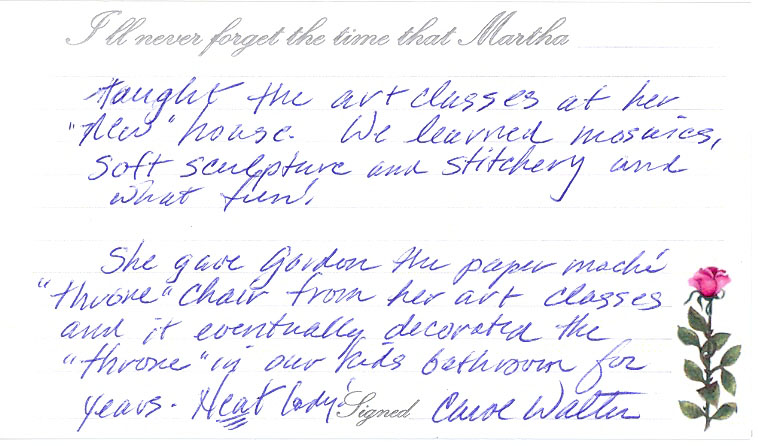 I'll never forget the time that Martha
taught the art classes at her
"new" house. We learned mosaics,
soft sculpture and stitchery and
what fun!
She gave Gordon the paper maché
"throne" chair from her art classes
and it eventually decorated the
"throne" in our kids bathroom for
years. Neat lady! Signed Carol Walter